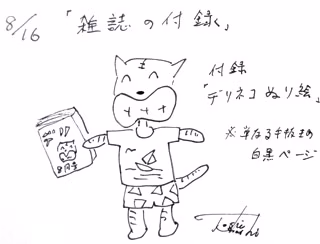 8/16 「雑誌の付録」
付録
「デリネコぬり絵」
※単なる手抜きの
白黒ページ
8月号